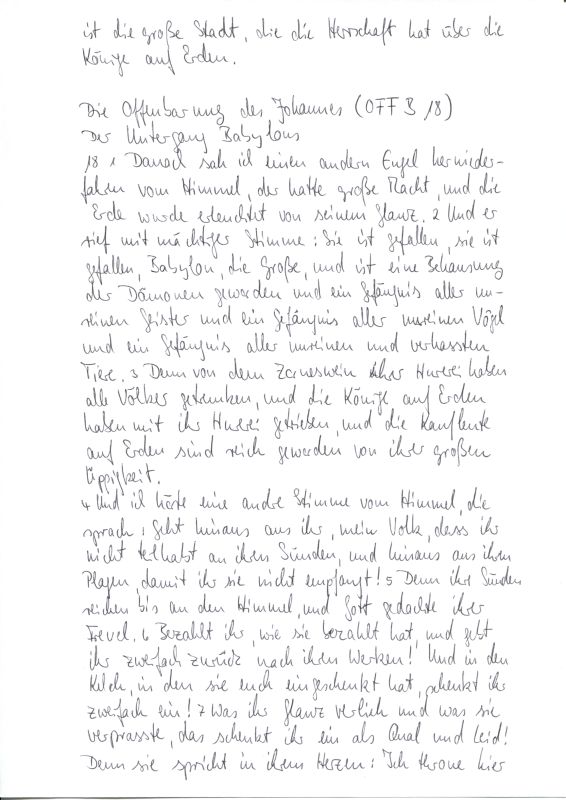 ist die große Stadt, die die Herrschaft hat über die
Könige auf Erden.
Die Offenbarung des Johannes (OFFB 18)
Der Untergang Babylons
18 1 Danach sah ich einen andern Engel hernieder-
fahren vom Himmel, der hatte große Macht, und die
Erde wurde erleuchtet von seinem Glanz. 2 Und er
rief mit mächtiger Stimme: Sie ist gefallen, sie ist
gefallen, Babylon, die Große, und ist eine Behausung
der Dämonen geworden und ein Gefängnis aller un-
reinen Geister und ein Gefängnis aller unreinen Vögel
und ein Gefängnis aller unreinen und verhassten
Tiere. 3 Denn von dem Zorneswein ihrer Hurerei haben
alle Völker getrunken, und die Könige auf Erden
haben mit ihr Hurerei getrieben, und die Kaufleute
auf Erden sind reich geworden von ihrer großen
Üppigkeit.
4 Und ich hörte eine andre Stimme vom Himmel, die
sprach: Geht hinaus aus ihr, mein Volk, dass ihr
nicht teilhabt an ihren Sünden, und hinaus aus ihren
Plagen, damit ihr sie nicht empfangt! 5 Denn ihre Sünden
reichen bis an den Himmel, und Gott gedachte ihrer
Frevel. 6 Bezahlt ihr, wie sie bezahlt hat, und gebt
ihr zweifach zurück nach ihren Werken! Und in den
Kelch, in den sie euch eingeschenkt hat, schenkt ihr
zweifach ein! 7 Was ihr Glanz verlieh und was sie
verprasste, das schenkt ihr ein als Qual und Leid!
Denn sie spricht in ihrem Herzen: Ich throne hier